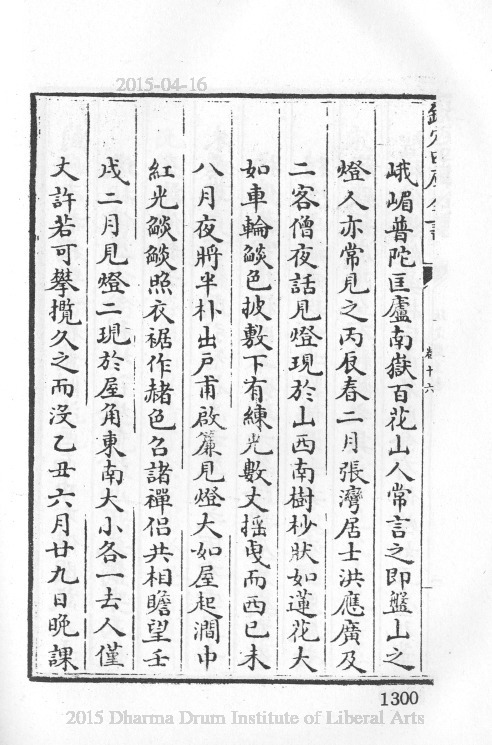 2015-04-16
欽定四庫全書
卷十六
峨嵋普陀匡廬南嶽百花山人常言之即盤山之
燈人亦常見之丙辰春二月張灣居士洪應廣及
二客僧夜話見燈現於山西南樹杪狀如蓮花大
如車輪燄色披敷下有練光數丈揺曳而西己未
八月夜將半朴出戶甫啟簾見燈大如屋起澗中
紅光燄燄照衣裾作赭色召諸禪侶共相瞻望壬
戌二月見燈二現於屋角東南大小各一去人僅
丈許若可攀攬久之而沒乙丑六月廿九日晚課
1300
2015 Dharma Drum Institute of Liberal Arts